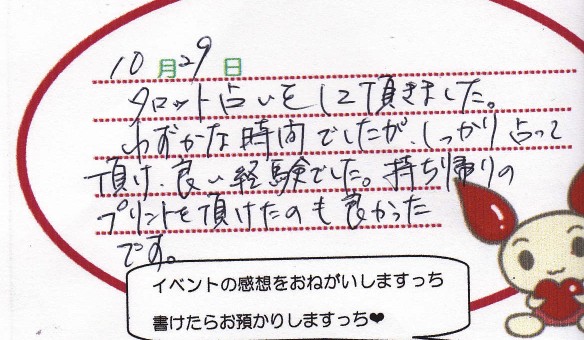 10月29日
タロット占いをして頂きました。
わずかな時間でしたが、しっかり占って
頂け、良い経験でした。持ち帰りの
プリントを頂けたのも良かった
です。
イベントの感想をおねがいしますっち
書けたらお預かりしますっち❤